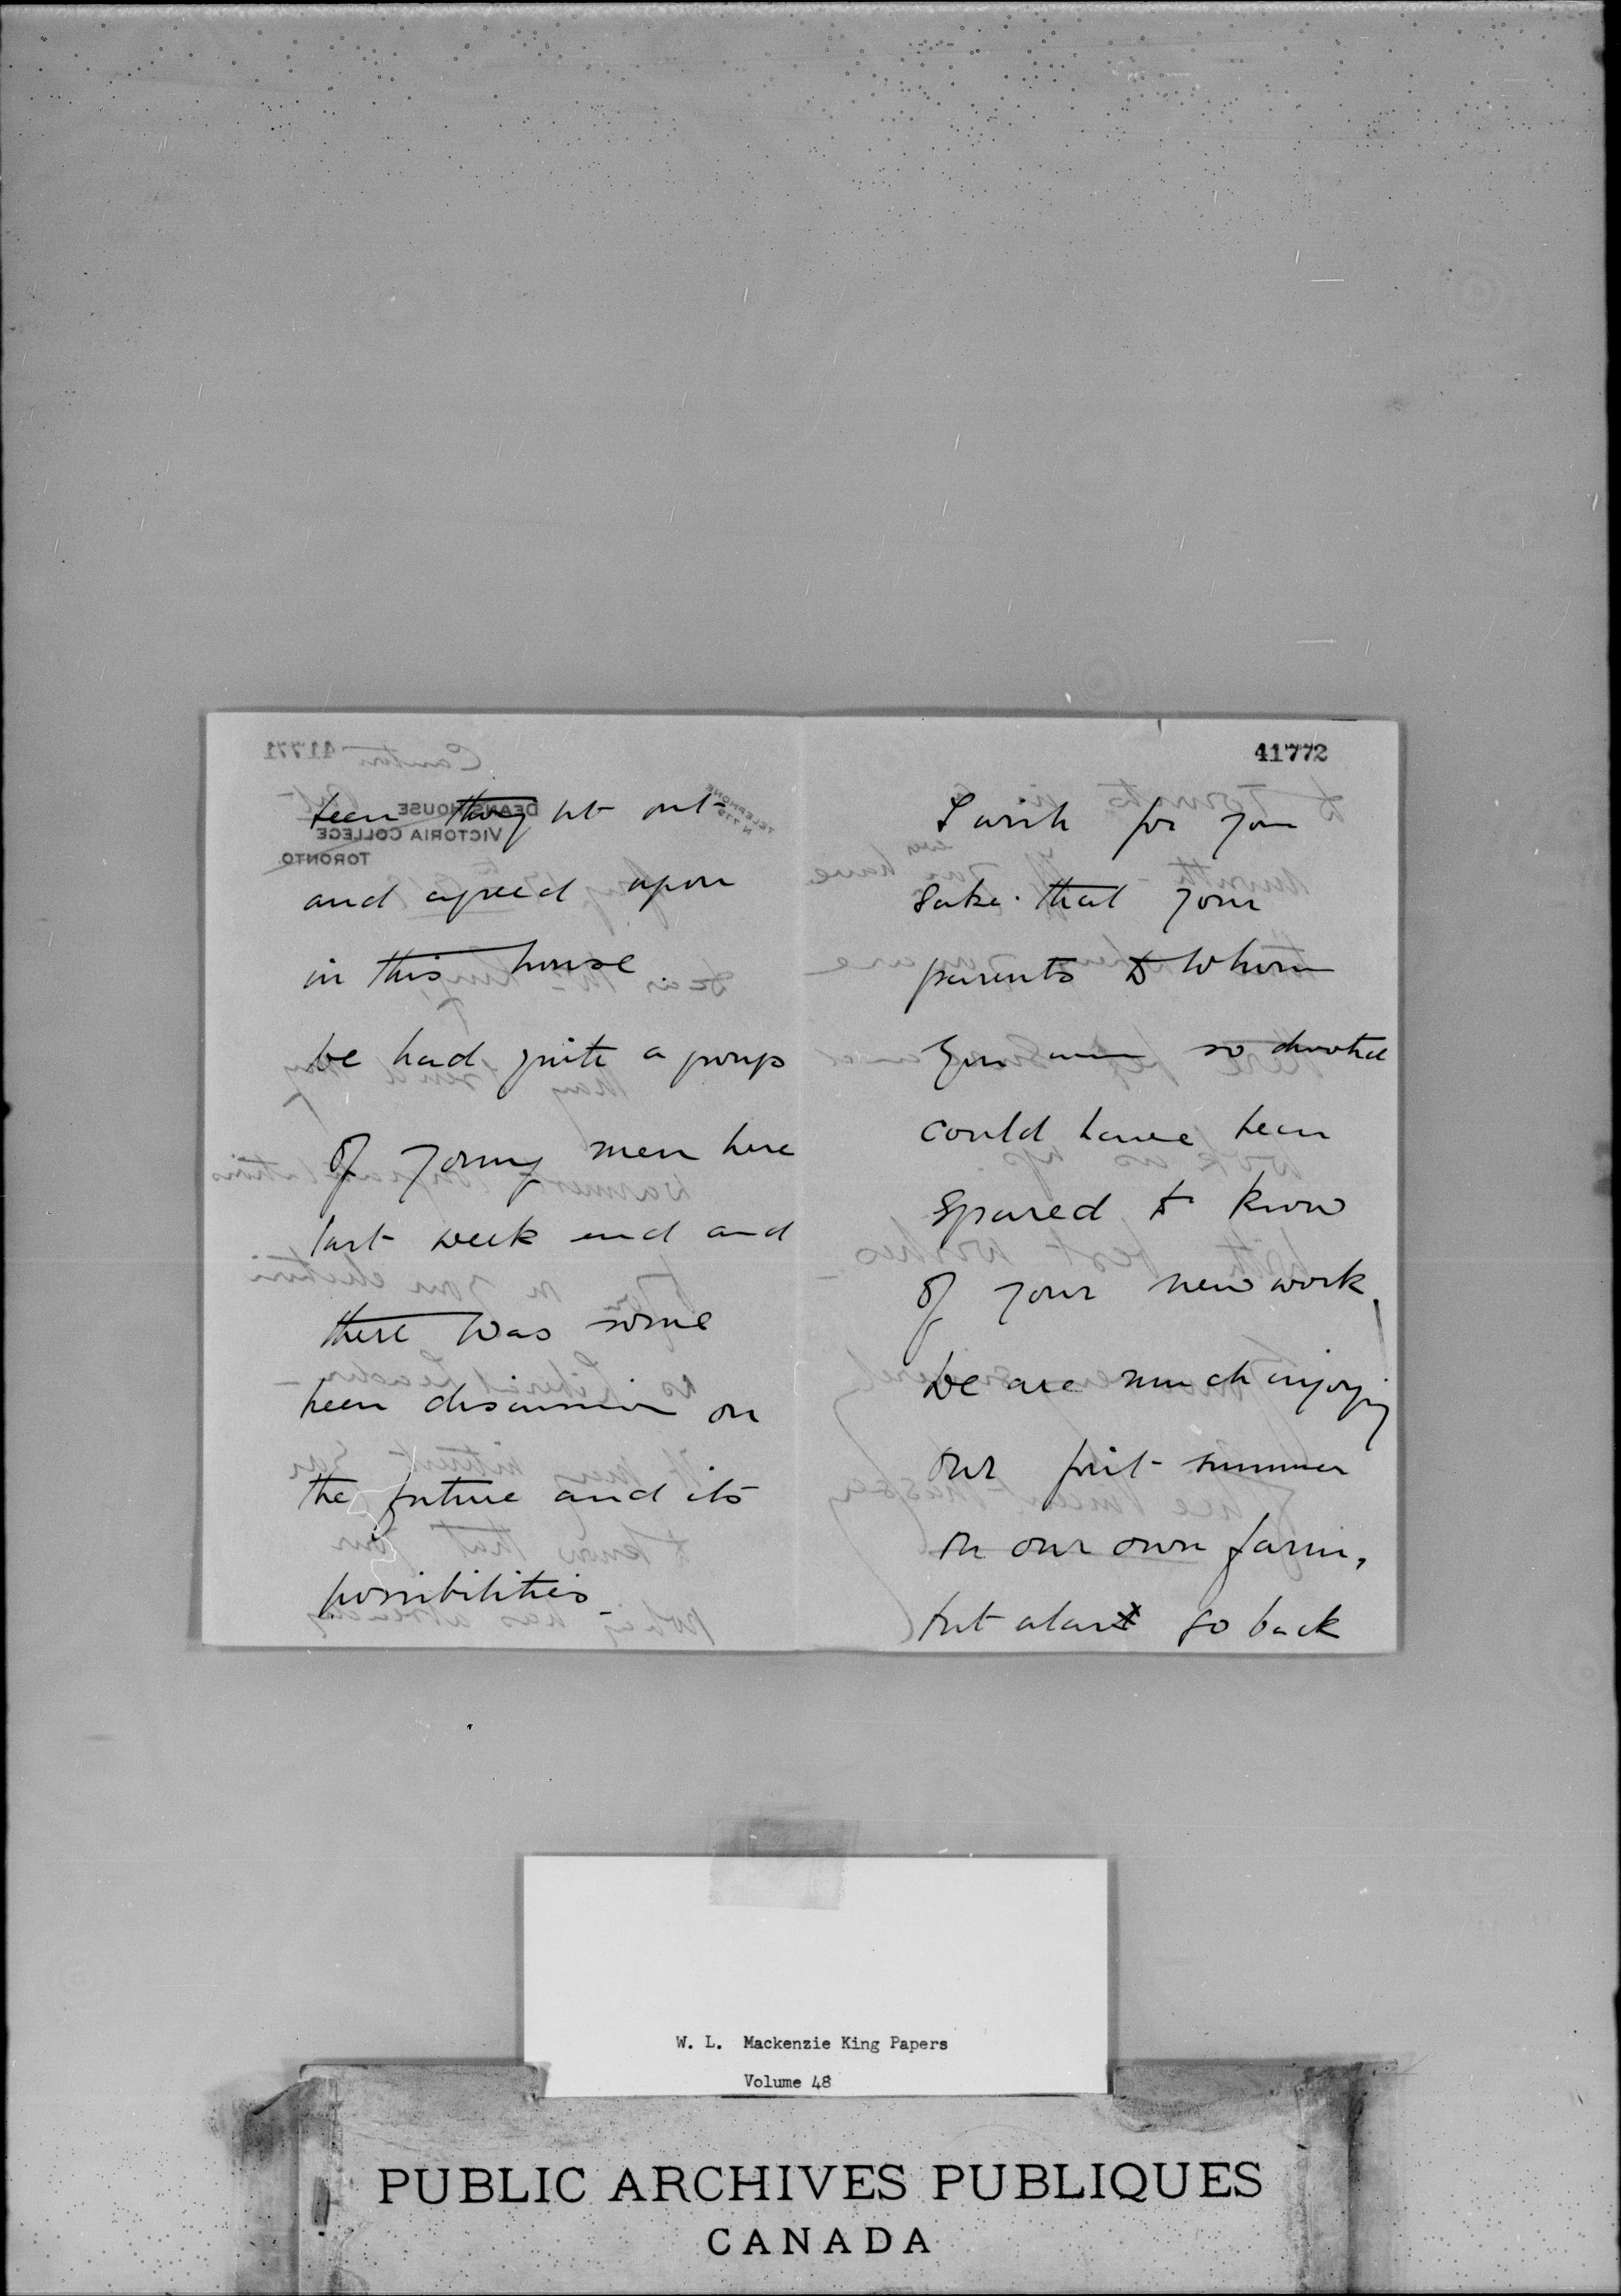 been thought out
and agreed upon
in this house
We had quite a group
of young men here
last week end and
there was some
keen discussion on
the future and its
possibilities
41772
I wish for your
sake that your
parents to whom
you were so devoted
could have been
spared to know
of your new work.
We are much enjoying
our first summer
on our own farm,
but alas go back
W. L. Mackenzie King Papers
Volume 48
PUBLIC ARCHIVES PUBLIQUES
CANADA